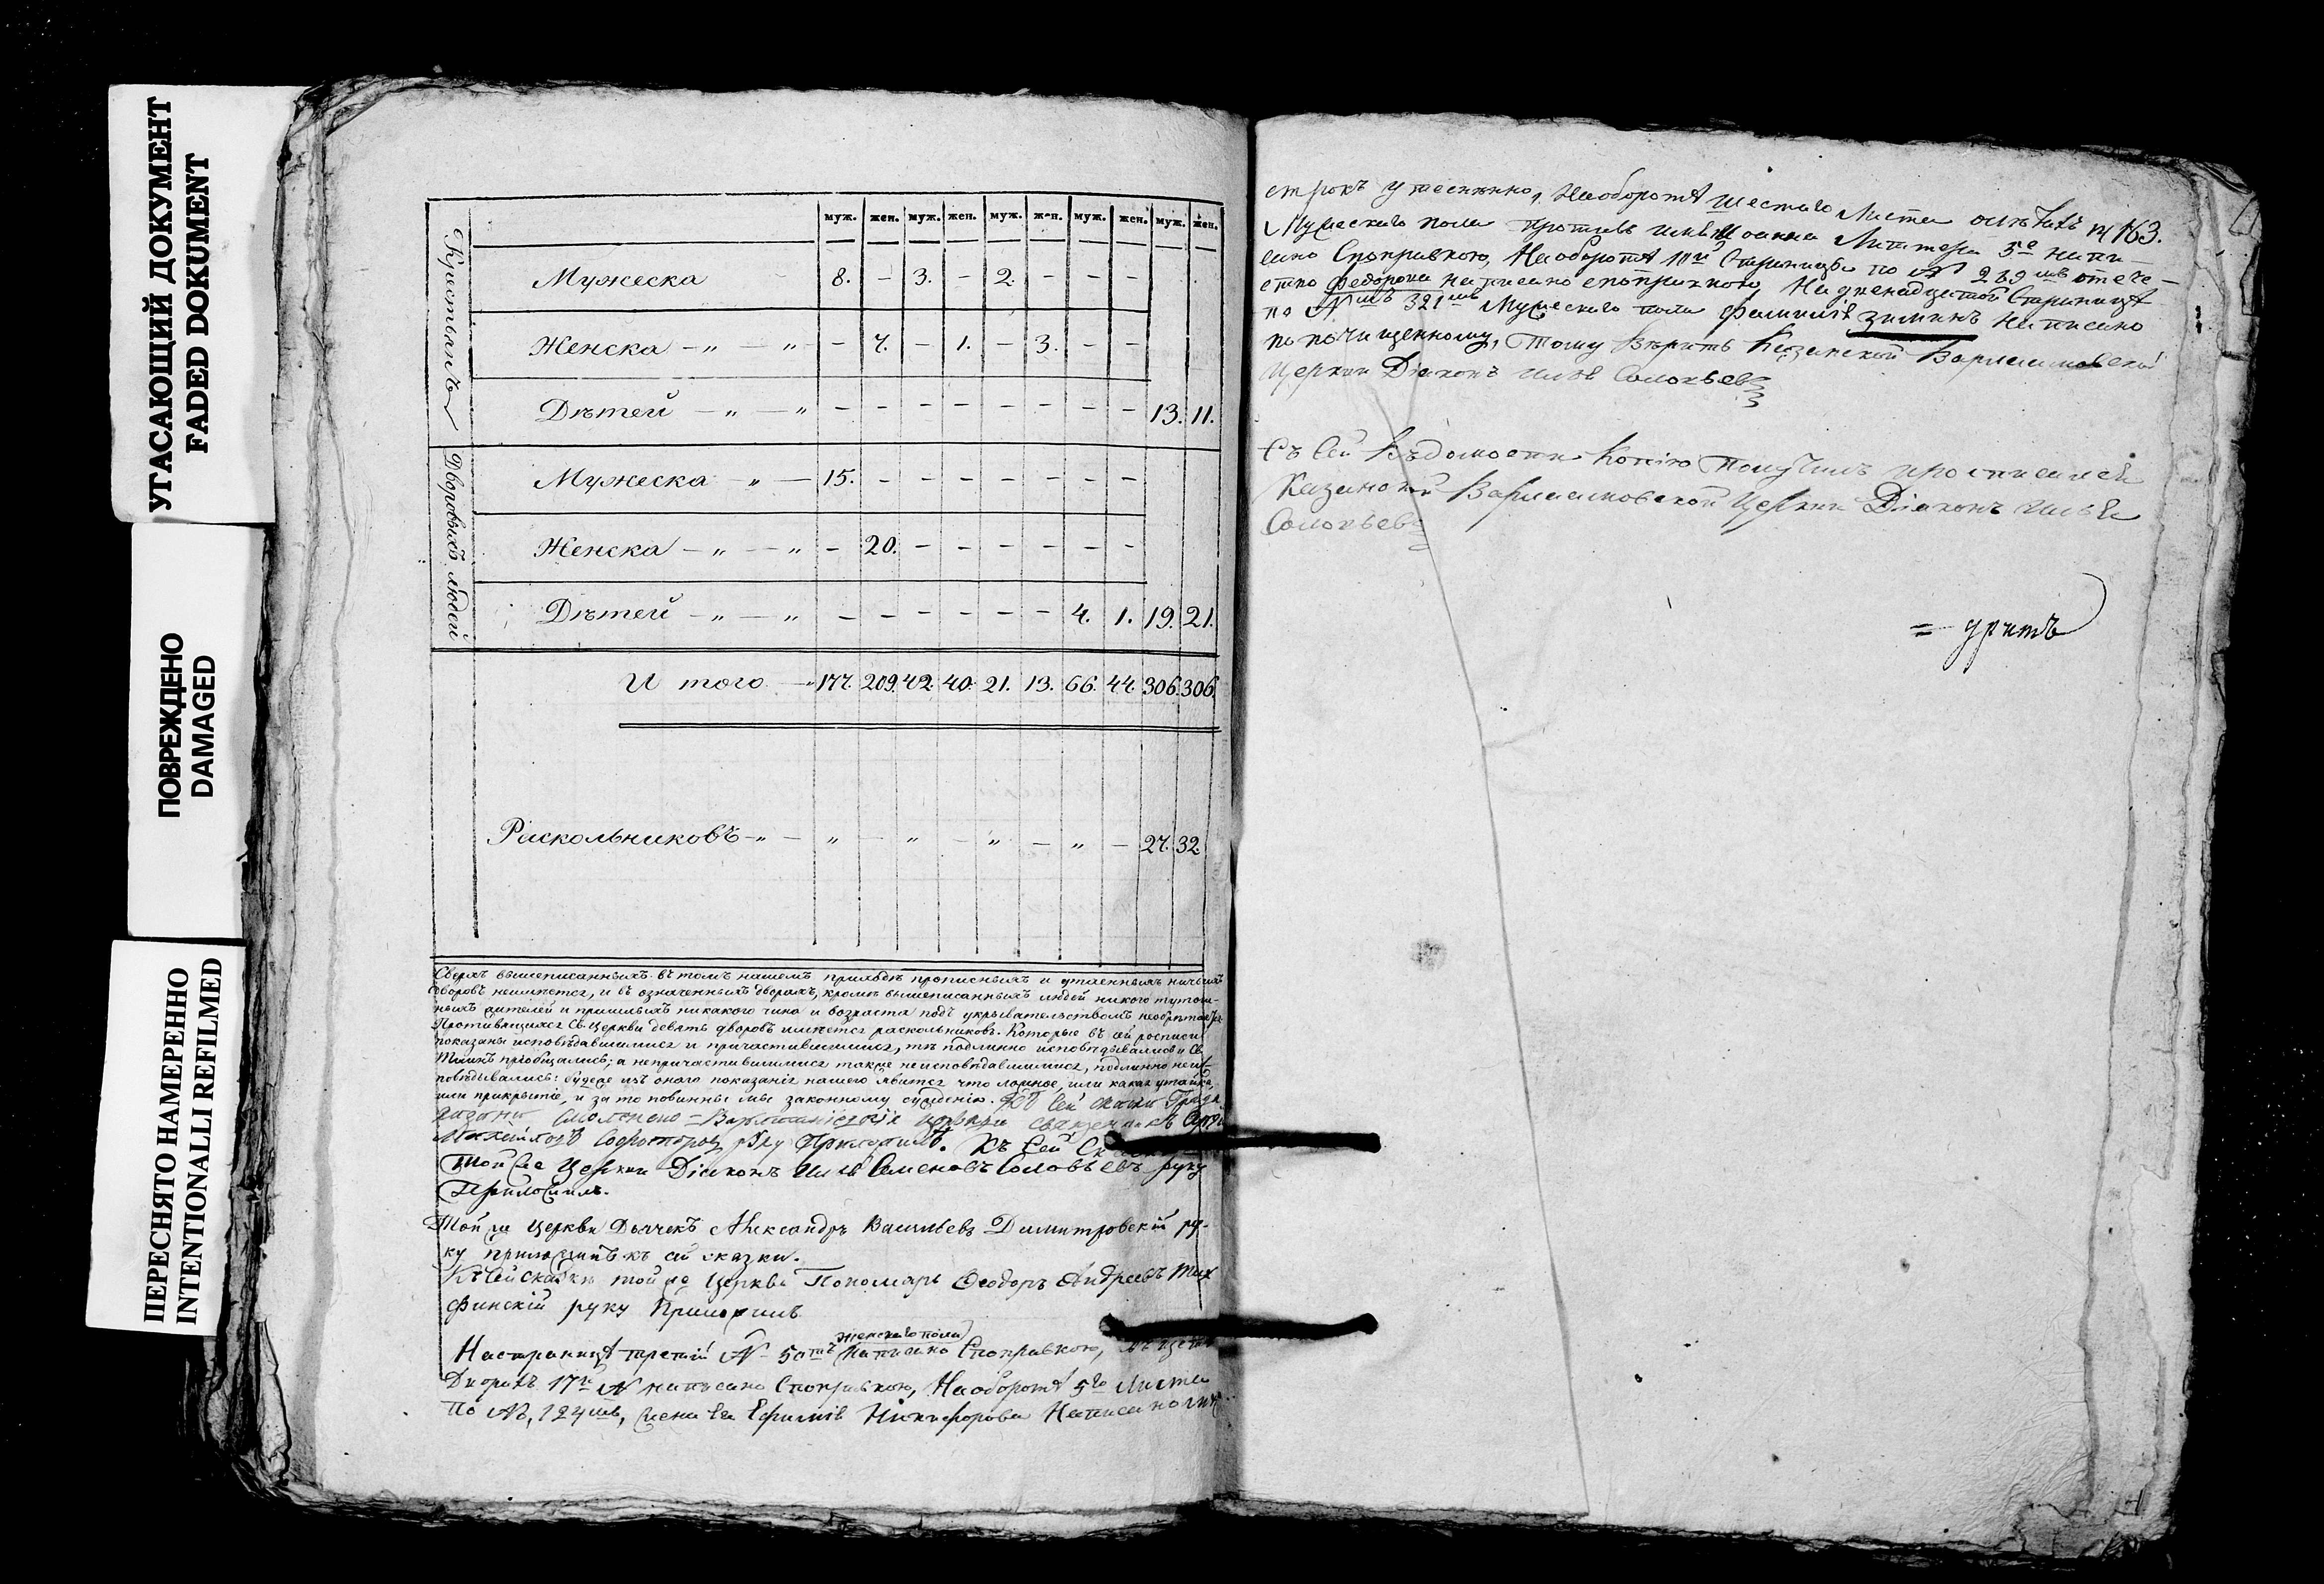 УГАСАЮЩИЙ ДОКУМЕНТ
FADED DOKUMENT
ПОВРЕЖДЕНО
DAMAGED
ПЕРЕСНЯТО НАМЕРЕННО
INTENTIONALLI REFILMED
муж. жен. муж. жен. муж. жен. муж. жен. муж. жен.
Крестьянъ
Мужеска 8. – 3. – 2. – – –
Женска – „ – „ – 7. – 1. – 3. – –
Дѣтей – „ – „ – – – – – – – – 13. 11.
Дворовыхъ людей
Мужеска – „ – 15. – – – – – – –
Женска – „ – „ – 20. – – – – – –
Дѣтей – „ – „ – – – – – – 4. 1. 19. 21.
И того – 177. 209. 42. 40. 21. 13. 66. 44. 306. 306.
Раскольниковъ – „ – „ – „ – „ – „ – 27. 32.
Сверхъ вышеписанныхъ въ томъ нашемъ приходѣ прописныхъ и утаенныхъ ничьихъ
дворовъ неимѣется, и въ означенныхъ дворахъ, кромѣ вышеписанныхъ людей никого тутош-
ныхъ жителей и пришлыхъ никакого чина и возраста подъ укрывательствомъ
Противящихся Св. Церкви девять дворовъ имѣется раскольниковъ. Которые въ сей росписи
показаны исповѣдавшимися и причастившимися, тѣ подлинно исповѣдывались и Св.
Таинъ приобщались; а непричастившимися также неисповѣдавшимися, подлинно неис-
повѣдывались: будеже изъ оного показанія нашего явится что ложное, или какая утайка,
или прикрытіе, и за то повинны мы законному сужденію. Къ сей скаски
церкви священникъ
руку приложилъ. Къ сей
Той же Церкви Діаконъ Илья Семеновъ Соловьевъ руку
Приложилъ.
Той же Церкви Дьячекъ Александръ Васильевъ Димитровскій ру-
ку приложилъ къ сей сказки.
Къ сей сказки той же Церкви Пономарь Ѳеодоръ Андреевъ Тих
финскій руку Приложилъ
женскаго пола
На страницѣ третій № 50мъ написано Споправкою,
17й № написано Споправкою, На оборотѣ 5го листа
По №, 124мъ, жена Ефимія Никифорова Написано
строкъ утеснѣнно, На оборотѣ шестаго Листа 163.
Мужескаго пола противъ Литтера 5е напи-
сано Споправкою, На оборотѣ Страницы по № 239мъ отече-
ство Федорова написано споправкою, На двенадцатой Страницѣ
по №мъ 321мъ Мужескаго пола фамилія Зиминъ написано
по почищенному, Тому вѣрить Казанской Варлаамовской
Церкви Діаконъ Илья Соловьевъ
Съ сей Вѣдомости Копію Получилъ
Казанской Варлаамовской Церкви Діаконъ Илья
Соловьевъ